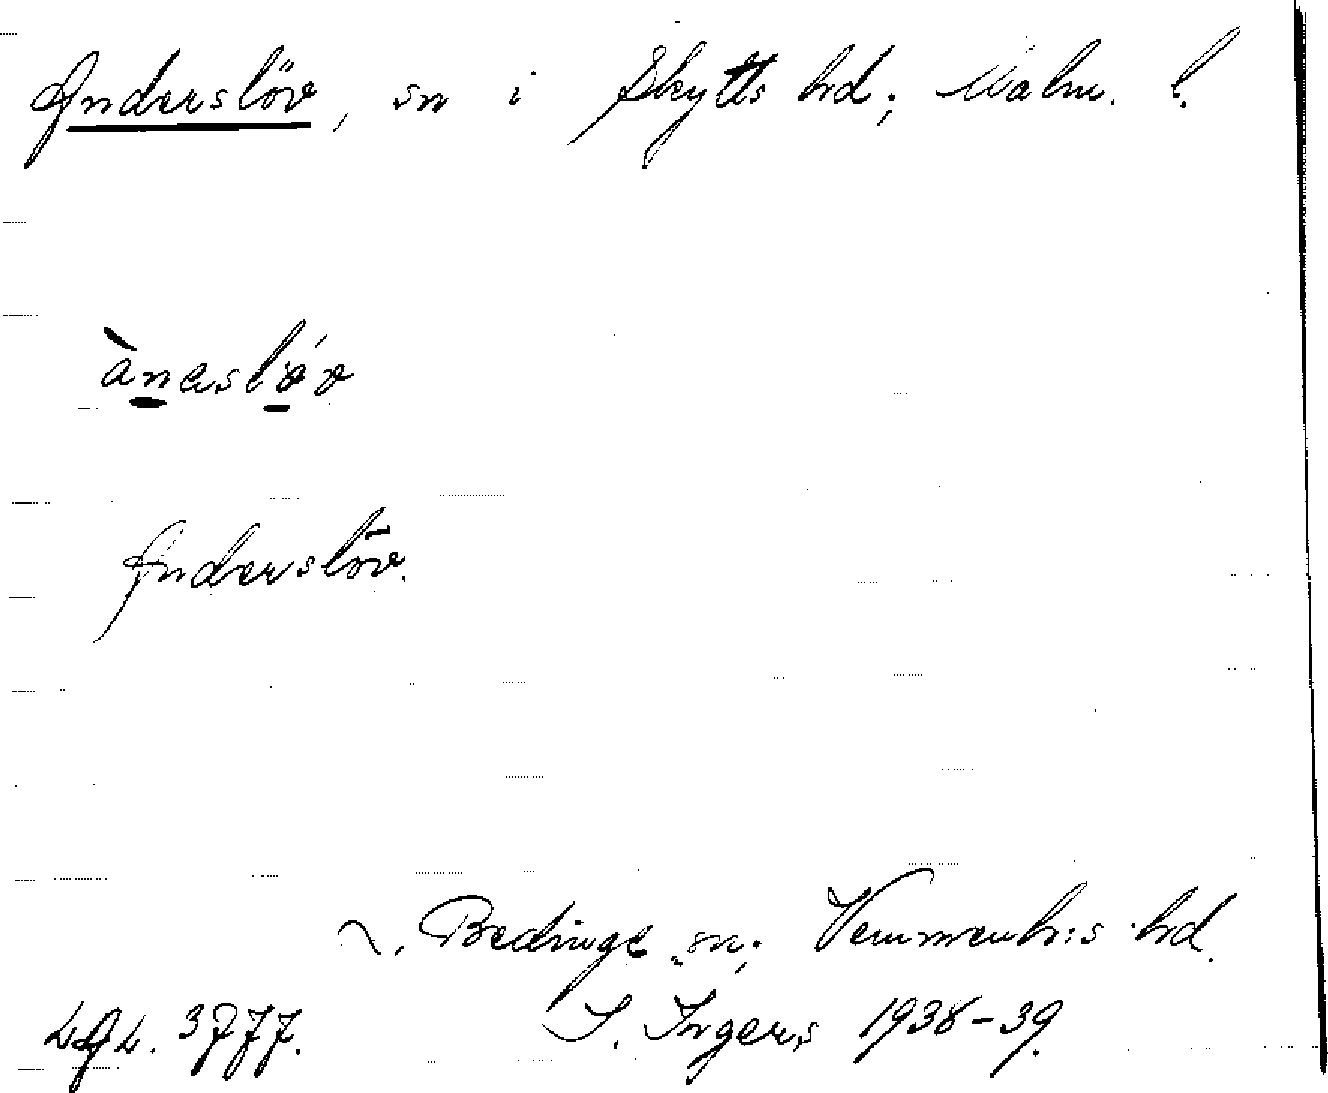 Anderslöv, sn i Skytts hd; Malm. l.
ànaslöv
Anderslöv.
Bedinge sn; Vemmenh:s hd.
3777. I. Ingers 1938-39.